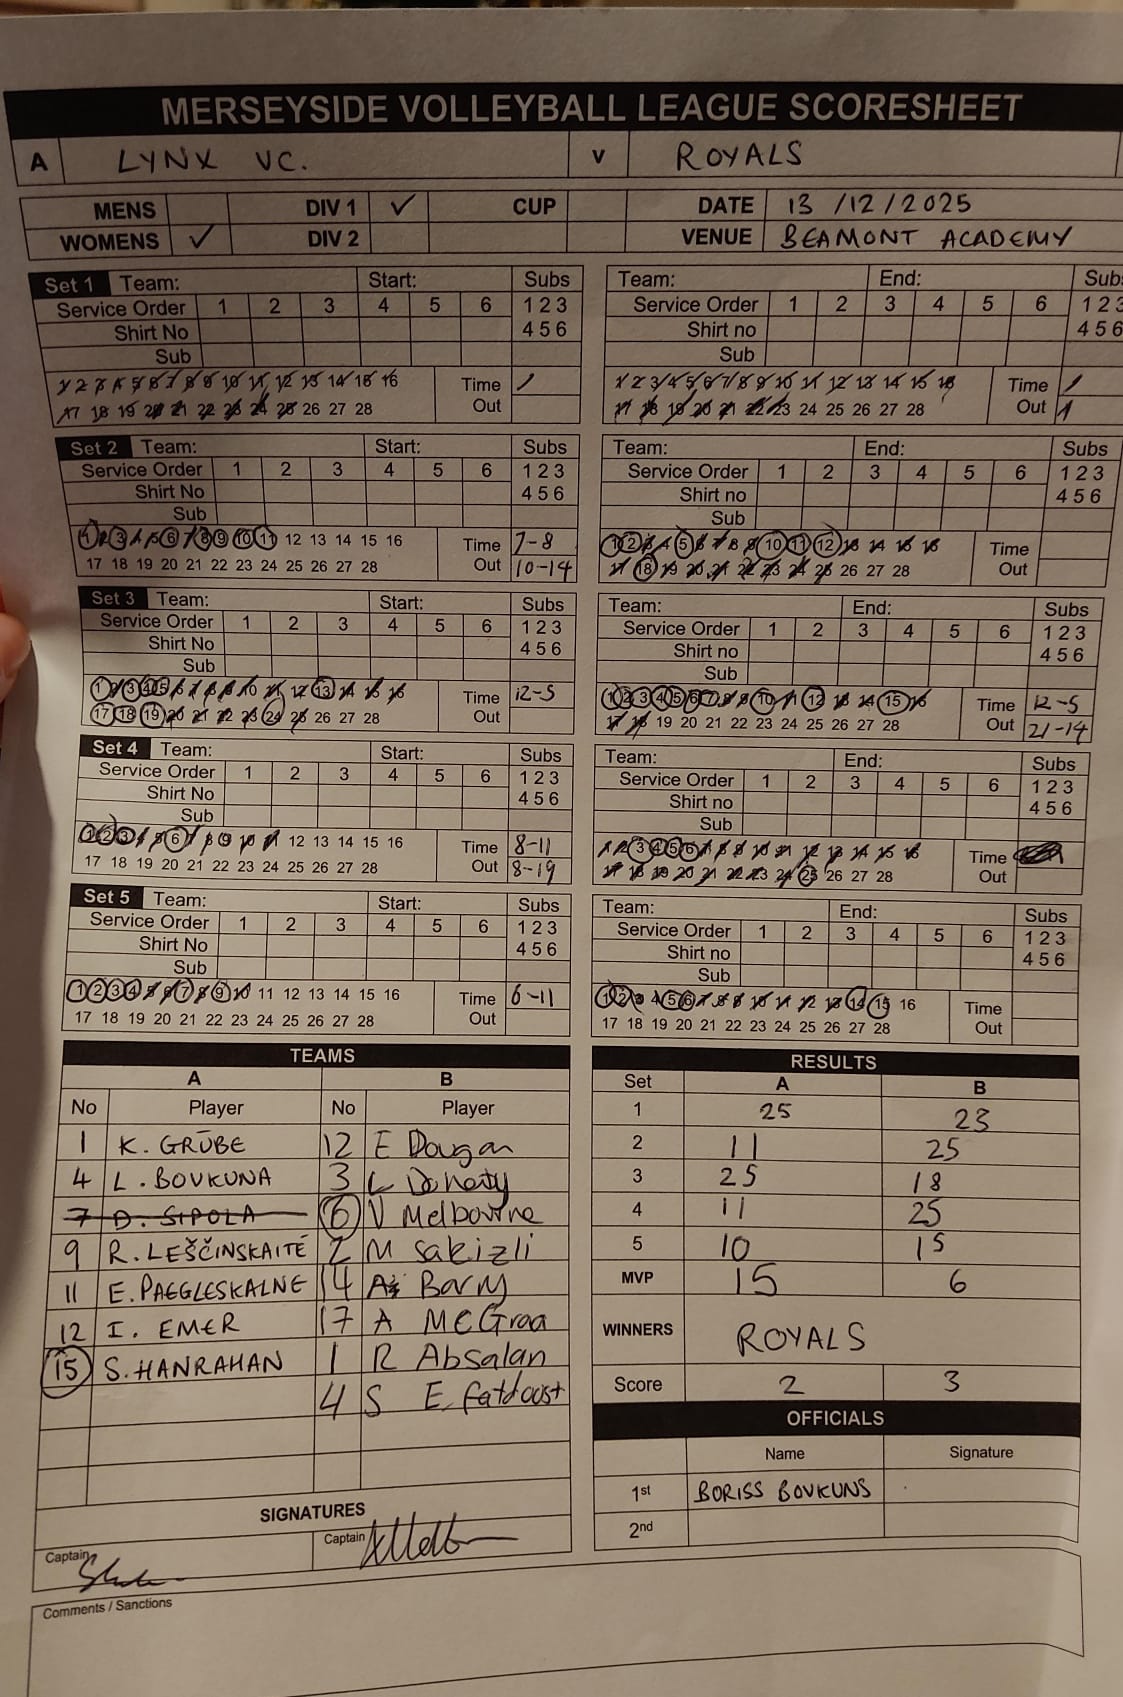 MERSEYSIDE VOLLEYBALL LEAGUE SCORESHEET
A LYNX VC. V ROYALS
MENS DIV 1 ✓ CUP DATE 13/12/2025
WOMENS ✓ DIV 2 VENUE BEAMONT ACADEMY
Set 1 Team: Start: Subs Team: End: Subs
Service Order 1 2 3 4 5 6 1 2 3 Service Order 1 2 3 4 5 6 1 2 3
Shirt No 4 5 6 Shirt no 4 5 6
Sub Sub
1 2 3 4 5 6 7 8 9 10 11 12 13 14 15 16 Time / 1 2 3 4 5 6 7 8 9 10 11 12 13 14 15 16 Time /
17 18 19 20 21 22 23 24 25 26 27 28 Out 17 18 19 20 21 22 23 24 25 26 27 28 Out
Set 2 Team: Start: Subs Team: End: Subs
Service Order 1 2 3 4 5 6 1 2 3 Service Order 1 2 3 4 5 6 1 2 3
Shirt No 4 5 6 Shirt no 4 5 6
Sub Sub
1 2 3 4 5 6 7 8 9 10 11 12 13 14 15 16 Time 7-8 1 2 3 4 5 6 7 8 9 10 11 12 13 14 15 16 Time
17 18 19 20 21 22 23 24 25 26 27 28 Out 10-14 17 18 19 20 21 22 23 24 25 26 27 28 Out
Set 3 Team: Start: Subs Team: End: Subs
Service Order 1 2 3 4 5 6 1 2 3 Service Order 1 2 3 4 5 6 1 2 3
Shirt No 4 5 6 Shirt no 4 5 6
Sub Sub
1 2 3 4 5 6 7 8 9 10 11 12 13 14 15 16 Time 12-5 1 2 3 4 5 6 7 8 9 10 11 12 13 14 15 16 Time 12-5
17 18 19 20 21 22 23 24 25 26 27 28 Out 17 18 19 20 21 22 23 24 25 26 27 28 Out 21-14
Set 4 Team: Start: Subs Team: End: Subs
Service Order 1 2 3 4 5 6 1 2 3 Service Order 1 2 3 4 5 6 1 2 3
Shirt No 4 5 6 Shirt no 4 5 6
Sub Sub
1 2 3 4 5 6 7 8 9 10 11 12 13 14 15 16 Time 8-11 1 2 3 4 5 6 7 8 9 10 11 12 13 14 15 16 Time
17 18 19 20 21 22 23 24 25 26 27 28 Out 8-19 17 18 19 20 21 22 23 24 25 26 27 28 Out
Set 5 Team: Start: Subs Team: End: Subs
Service Order 1 2 3 4 5 6 1 2 3 Service Order 1 2 3 4 5 6 1 2 3
Shirt No 4 5 6 Shirt no 4 5 6
Sub Sub
1 2 3 4 5 6 7 8 9 10 11 12 13 14 15 16 Time 6-11 1 2 3 4 5 6 7 8 9 10 11 12 13 14 15 16 Time
17 18 19 20 21 22 23 24 25 26 27 28 Out 17 18 19 20 21 22 23 24 25 26 27 28 Out
TEAMS
A B
No Player No Player
1 K. GRŪBE 12 E Dougan
4 L. BOVKUNA 3 L Doherty
7 D. SIPOLA 6 V Melbourne
9 R. LEŠČINSKAITĖ 2 M Sakizli
11 E. PAEGLESKALNE 14 Barry
12 I. EMER 17 A McGraa
15 S. HANRAHAN 1 R Absalan
4 S E. fatdoost
SIGNATURES
Captain Captain
RESULTS
Set A B
1 25 23
2 11 25
3 25 18
4 11 25
5 10 15
MVP 15 6
WINNERS ROYALS
Score 2 3
OFFICIALS
Name Signature
1st BORISS BOVKUNS
2nd
Comments / Sanctions